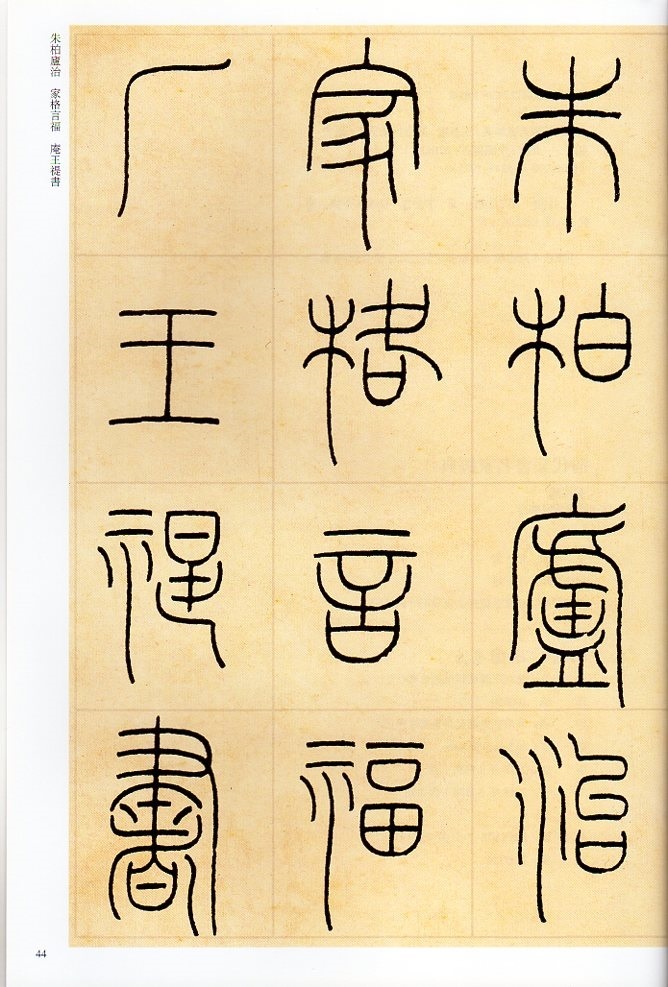 朱柏廬治
家格言福
厂王禔書
朱柏廬治　家格言福　庵王禔書
44